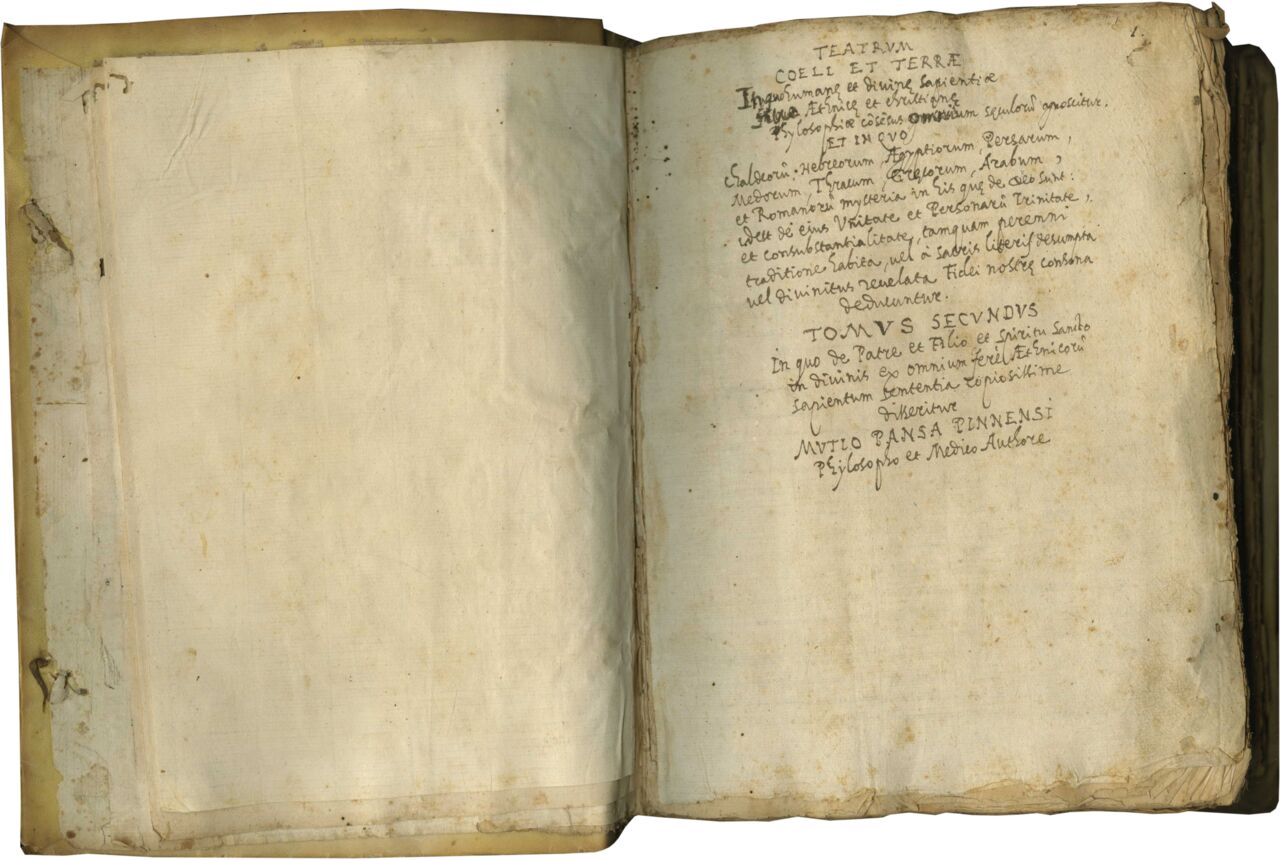 1.
TEATRVM
COELI ET TERRÆ
In quo humanę et divinę sapientiæ
sive Æthnicę et christianę
Phylosophiæ cōsēsus omnium seculorū gnoscitur.
ET IN QVO
Chaldeorū, Hebreorum, Ægyptiorum, Persarum,
Medorum, Thracum, Gręcorum, Arabum,
et Romanorū mysteria in his quę de Deo sunt:
idest de eius Vnitate et Personarū Trinitate,
et consubstantialitate, tamquam perenni
traditione habita, vel à sacris literis desumpta
vel divinitus revelata Fidei nostrę consona
deducuntur.
TOMVS SECVNDVS
In quo de Patre et Filio et Spiritu Sancto
in divinis ex omnium ferè Æthnicorū
sapientum sententia copiosissime
disseritur
MVTIO PANSA PINNENSI
Phylosopho et Medico Authore